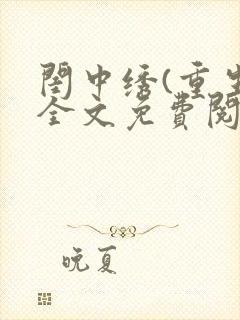 閨中绣(重生
全文免費閱
晚夏